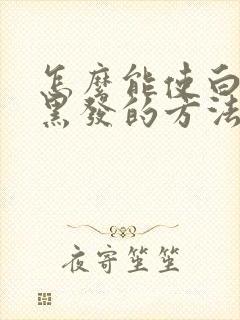 怎麼能使白
黑發的方法
夜寄笙笙